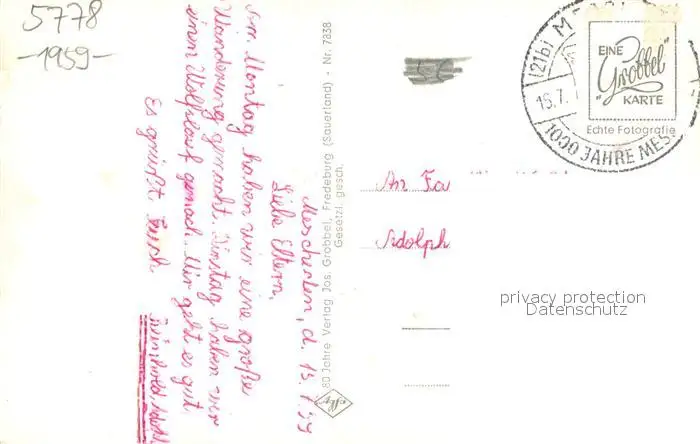 5778
-1959-
Mescherten, d. 15.7.59
Liebe Eltern,
Am Montag haben wir eine große
Wanderung gemacht. Dinstag haben wir
einen Wolfslauf gemach. Mir geht es gut
Es grüßt Euch
80 Jahre Verlag Jos. Grobbel, Fredeburg (Sauerland) - Nr. 7838
Gesetzl. gesch.
Agfa
50
An Fa
Adolph
(21b)
15.7.
1000 JAHRE MES
EINE
"Grobbel"
KARTE
Echte Fotografie
privacy protection
Datenschutz